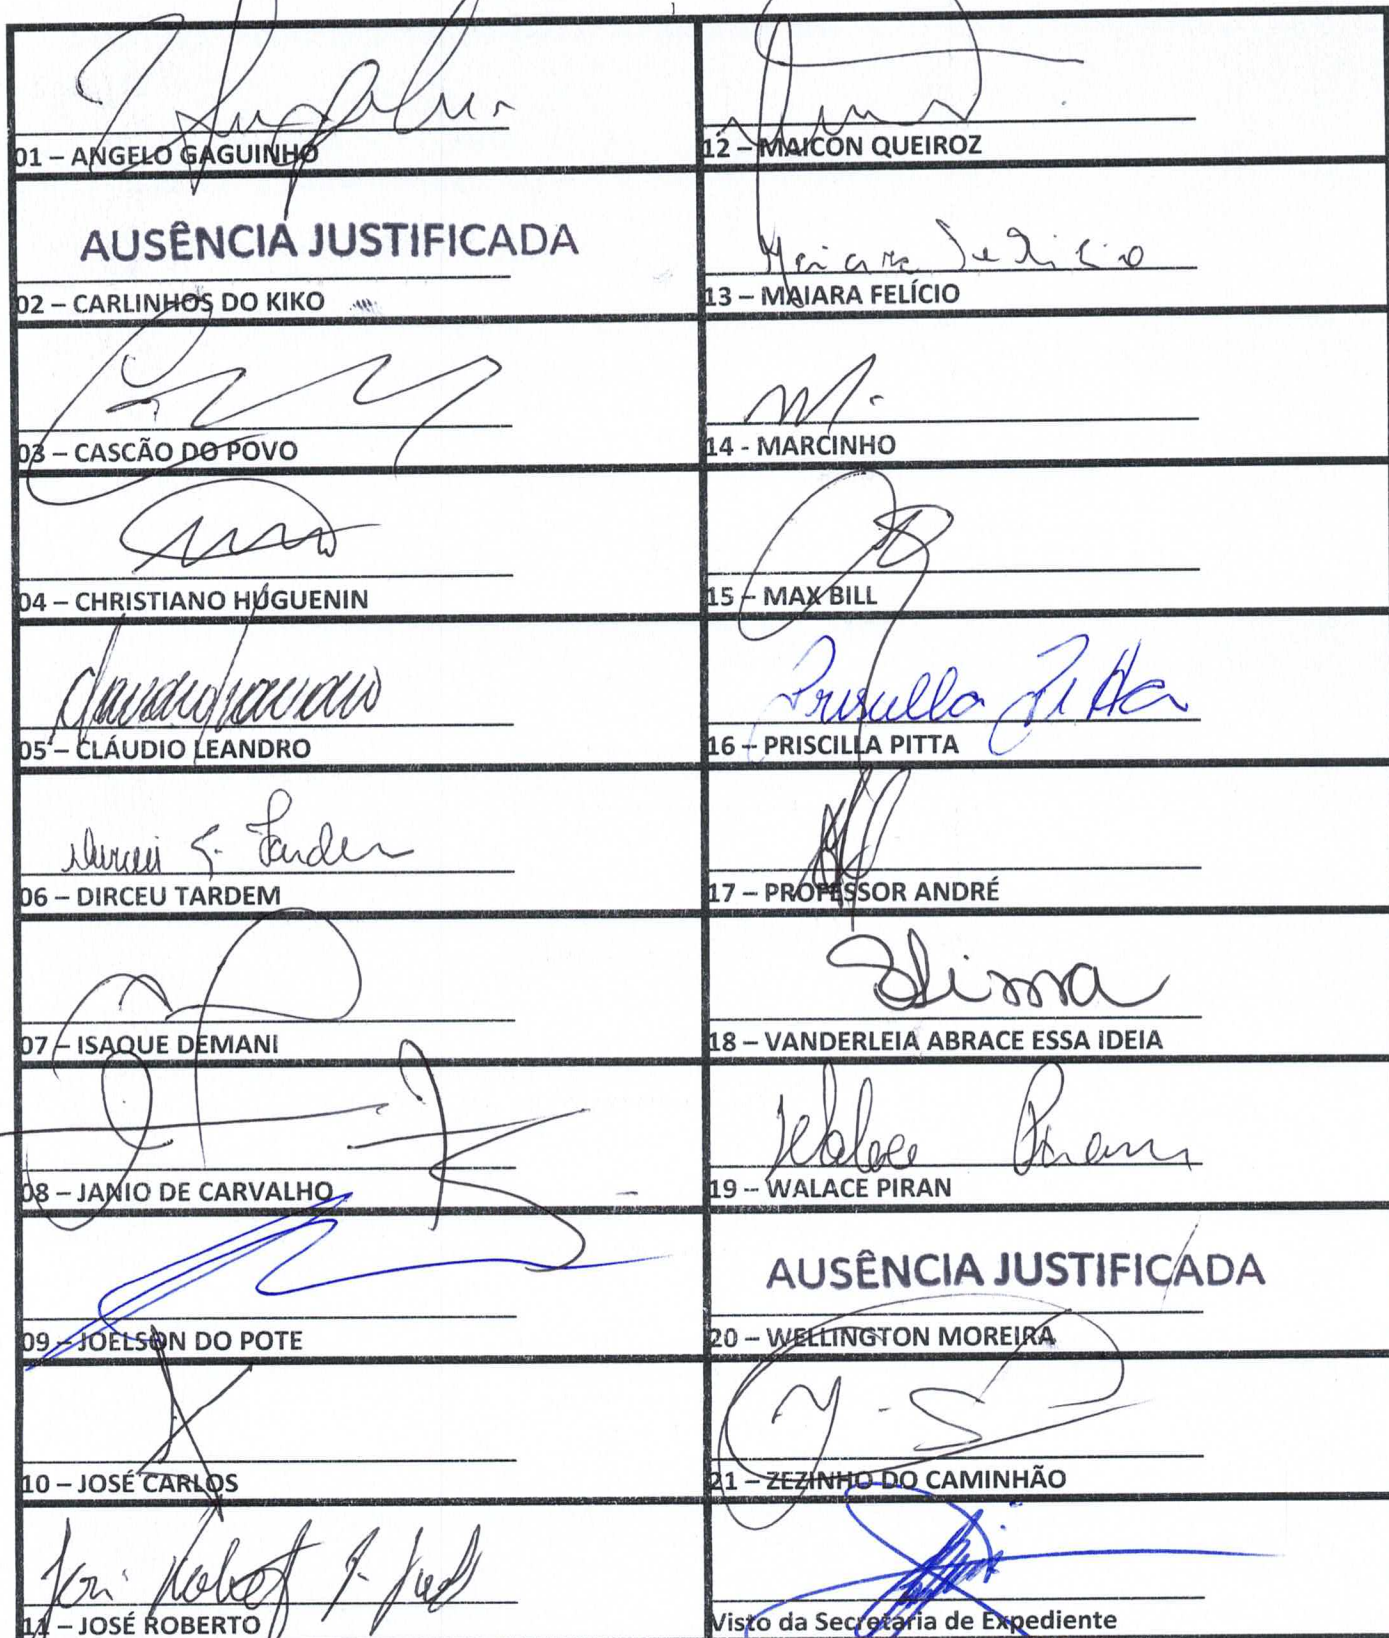 01 – ANGELO GAGUINHO
AUSÊNCIA JUSTIFICADA
02 – CARLINHOS DO KIKO
03 – CASCÃO DO POVO
04 – CHRISTIANO HUGUENIN
05 – CLÁUDIO LEANDRO
06 – DIRCEU TARDEM
07 – ISAQUE DEMANI
08 – JANIO DE CARVALHO
09 – JOELSON DO POTE
10 – JOSÉ CARLOS
11 – JOSÉ ROBERTO
12 – MAICON QUEIROZ
Maiara Felício
13 – MAIARA FELÍCIO
14 - MARCINHO
15 – MAX BILL
Priscilla Pitta
16 – PRISCILLA PITTA
17 – PROFESSOR ANDRÉ
18 – VANDERLEIA ABRACE ESSA IDEIA
Walace Piran
19 -- WALACE PIRAN
AUSÊNCIA JUSTIFICADA
20 – WELLINGTON MOREIRA
21 – ZEZINHO DO CAMINHÃO
Visto da Secretaria de Expediente